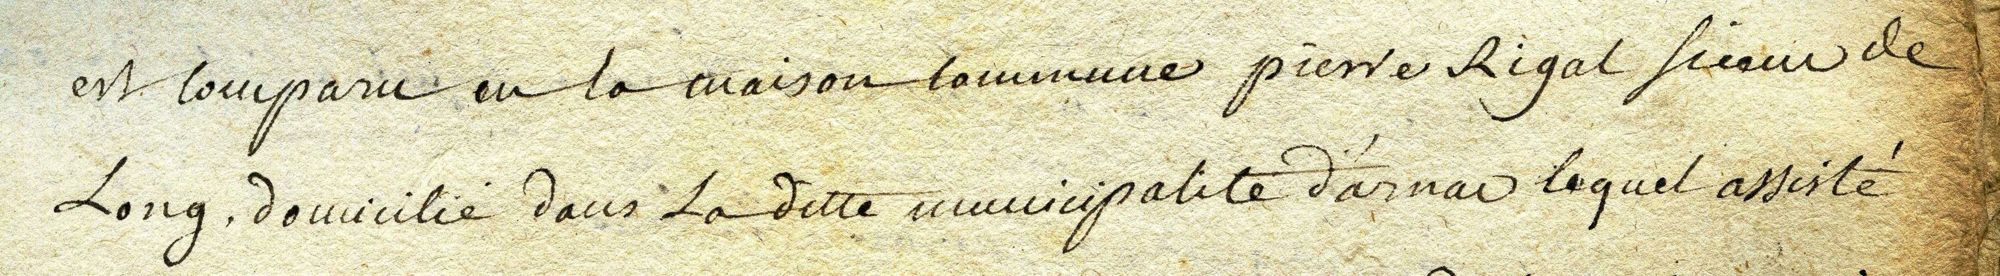 est comparu en la maison commune pierre Rigal sieur de
Long, domicilié dans La ditte municipalité d'arnac lequel assisté